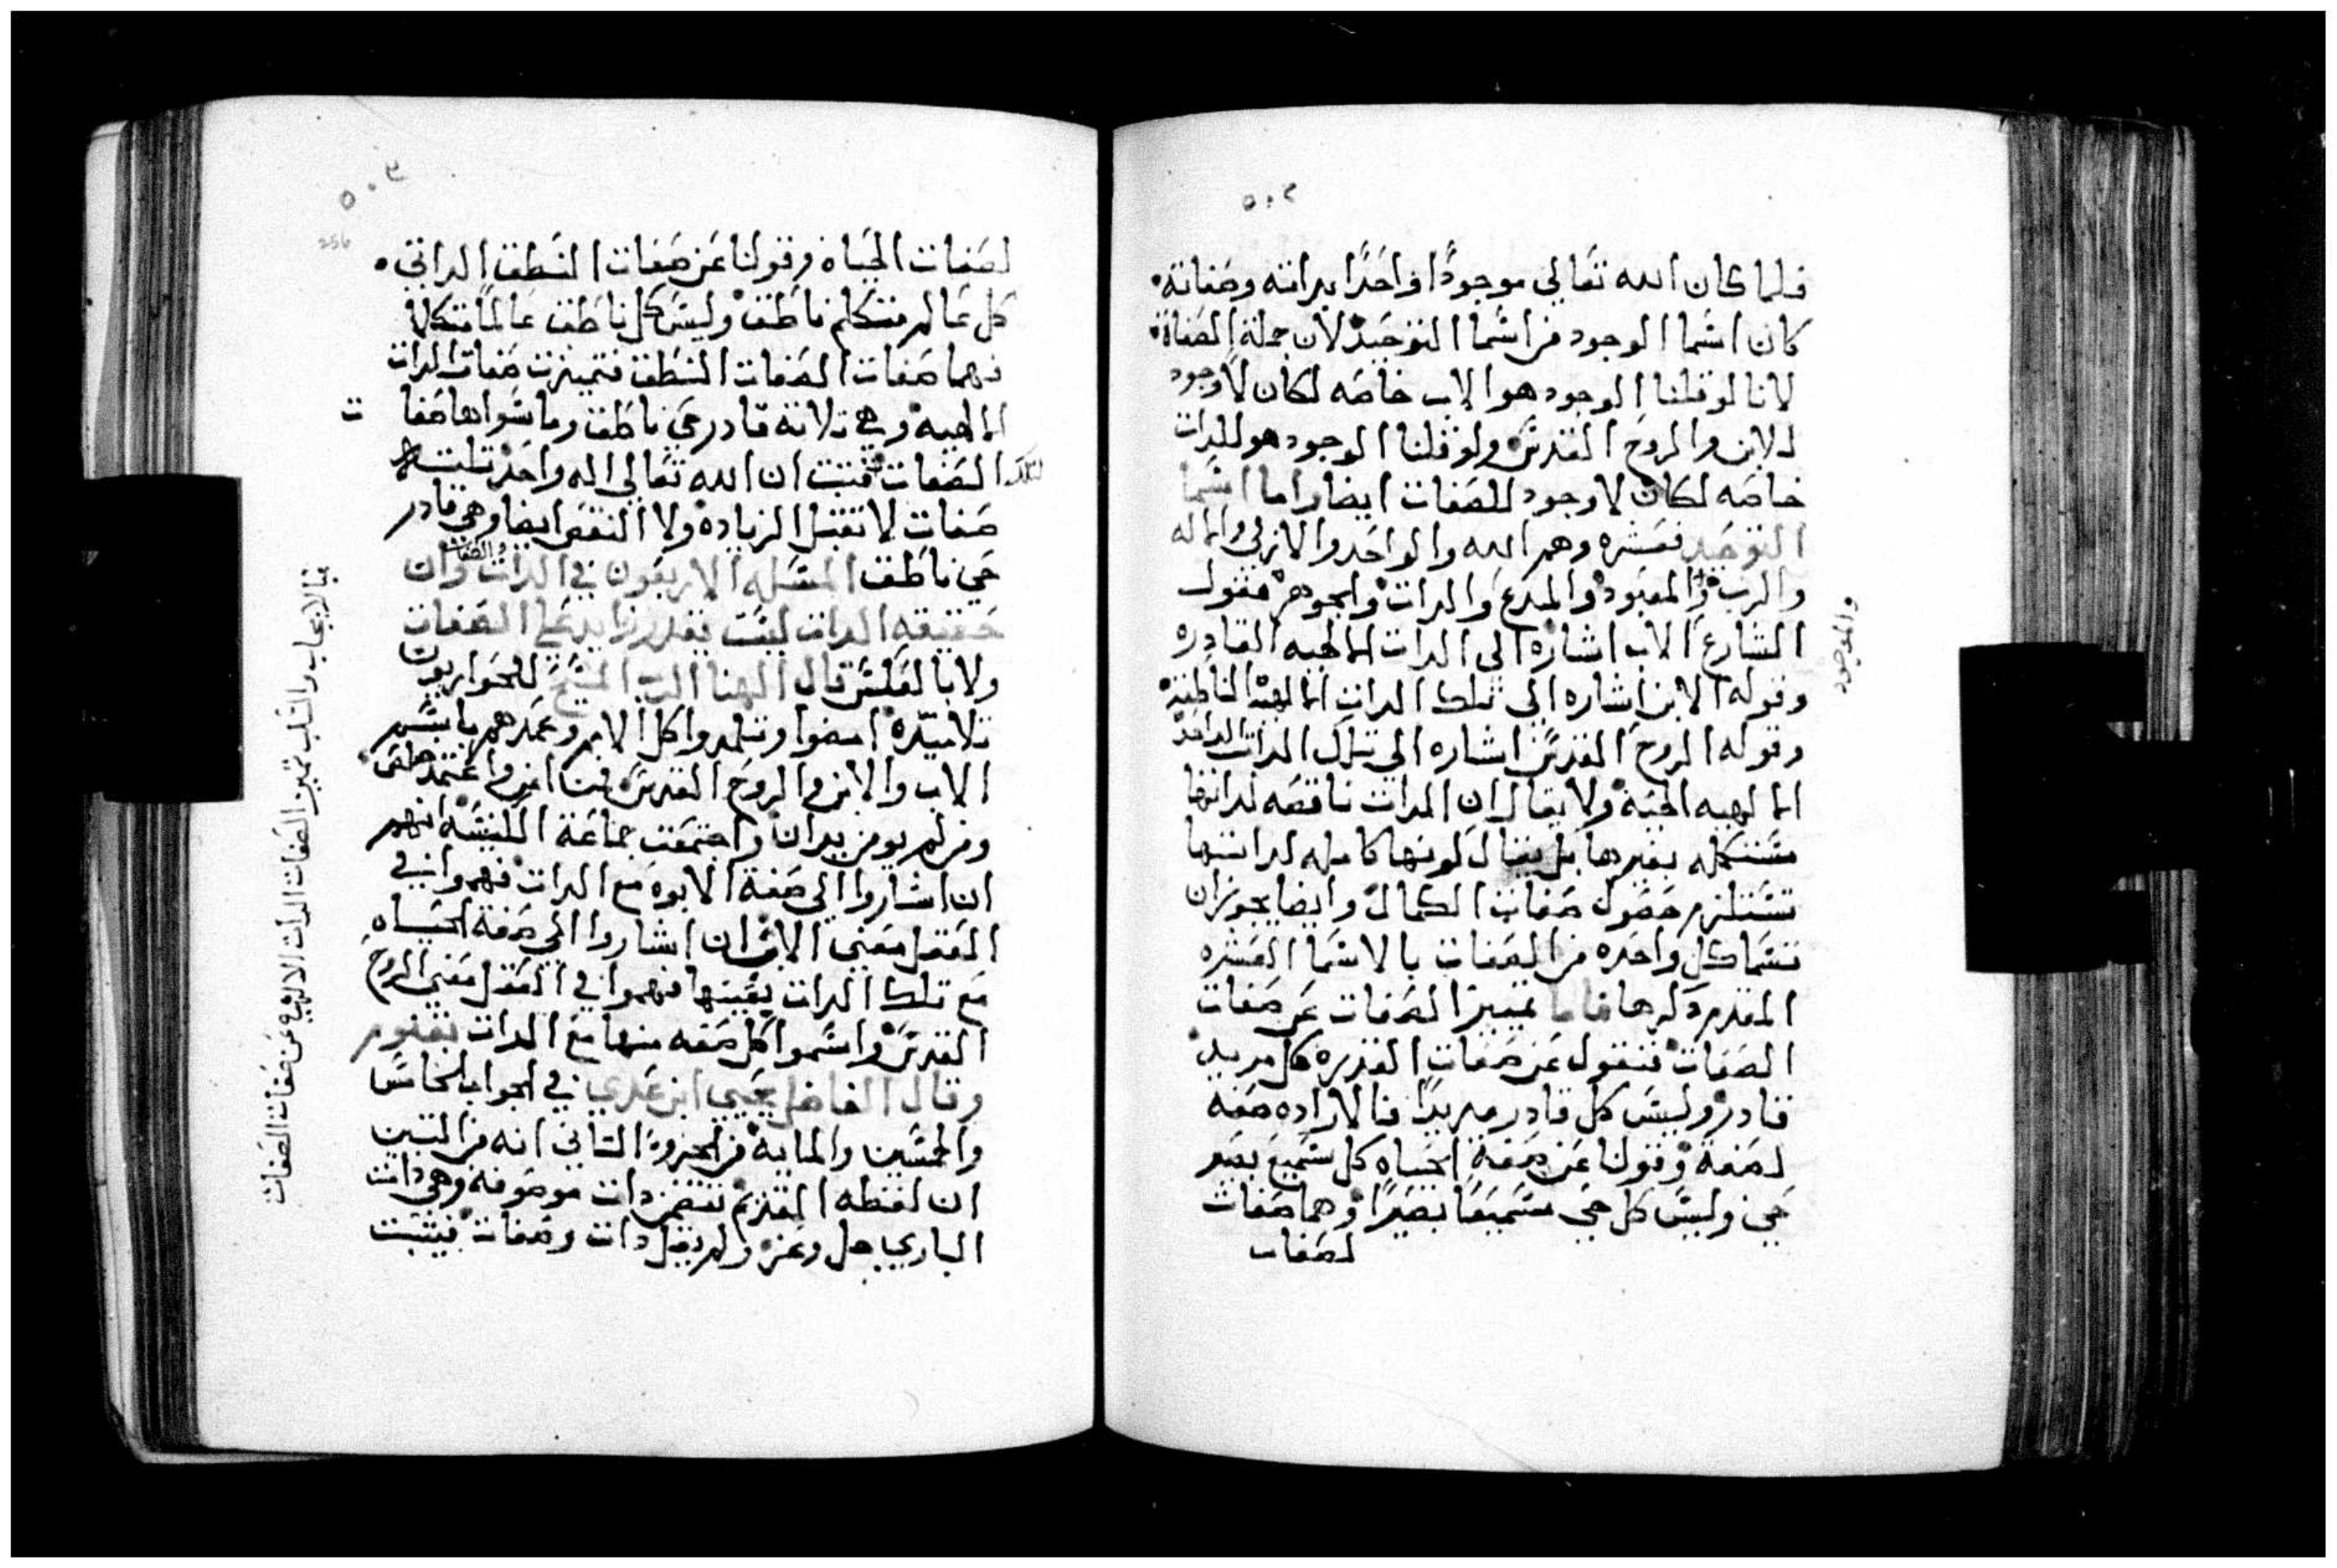 ٥٠٢
فلما كان الله تعالي موجودًا واحدًا بداته وصفاته
كان اسما الوجود من اسما التوحيد لان جملة الصفاة
لانا لو قلنا الوجود هو الاب خاصه لكان لا وجود
للابن والروح القدس ولو قلنا الوجود هو للدات
خاصه لكان لا وجود للصفات ايضا واما اسما
التوحيد فعشره وهم الله والواحد والازلي والاله
والرب والمعبود والمبدع والدات والجوهر فقول
والموجود
الشارع الاب اشاره الي الدات الالهيه القادره
وقوله الابن اشاره الي تلك الدات الالهيه الناطقة
وقوله الروح القدس اشاره الي تلك الدات الواحدة
الالهيه الحية ولا يقال ان الدات ناقصه لداتها
مستكمله بغيرها بل يقال لونها كامله لداتها
تستلزم حصول صفات الكمال وايضا يجوز ان
تسما كل واحده من الصفات بالاسما العشره
المقدم دكرها فاما تمييز الصفات عن صفات
الصفات فنقول عن صفات القدره كل مريد
قادر وليس كل قادر مريدًا فالاراده صفة
لصفة وقولنا عن صفة الحياه كل سميع بصير
حي وليس كل حي سميعًا بصيرًا وهما صفات
لصفات
٥٠٣
256
لصفات الحياه وقولنا عن صفات النطق الداتي
كل عالم متكلم ناطق وليس كل ناطق عالمًا متكلمًا
فهما صفات الصفات النطق فتميزت صفات الدات
الالهيه وهي تلاتة قادر حي ناطق وما سواها صفا ت
لتلك الصفات فتبت ان الله تعالي اله واحد تلت
صفات لا تقبل الزياده ولا النقص ايضا وهي قادر
حي ناطق المسله الاربعون في الدات والصفات وان
حقيقة الدات ليست بقدر زايد علي الصفات
ولا بالعكس قال الهنا الرب المسيح للحواريون
تلاميده امضوا وتلمدوا كل الامم وعمدهم باسم
الاب والابن والروح القدس فمن امن واعتمد خلص
ومن لم يومن يدان واجتمعت جماعة الكنيسه انهم
ان اشاروا الي صفة الابوه مع الدات فهموا في
العقل معني الاب وان اشاروا الي صفة الحياه
مع تلك الدات بعينها فهموا في العقل معني الروح
القدس واسموا كل صفه منها مع الدات بقنوم
وقال الفاضل يحيي ابن عدي في الجواب الخامس
والخمسين والمايه من الجزو التاني انه من البين
ان لفظه القديم تتضمن دات موصوفه وهي دات
الباري جل وعز ولم تقل دات وصفات فيثبت
بالايجاب والسلب تميز الصفات الدات الالهيه عن صفات الصفات